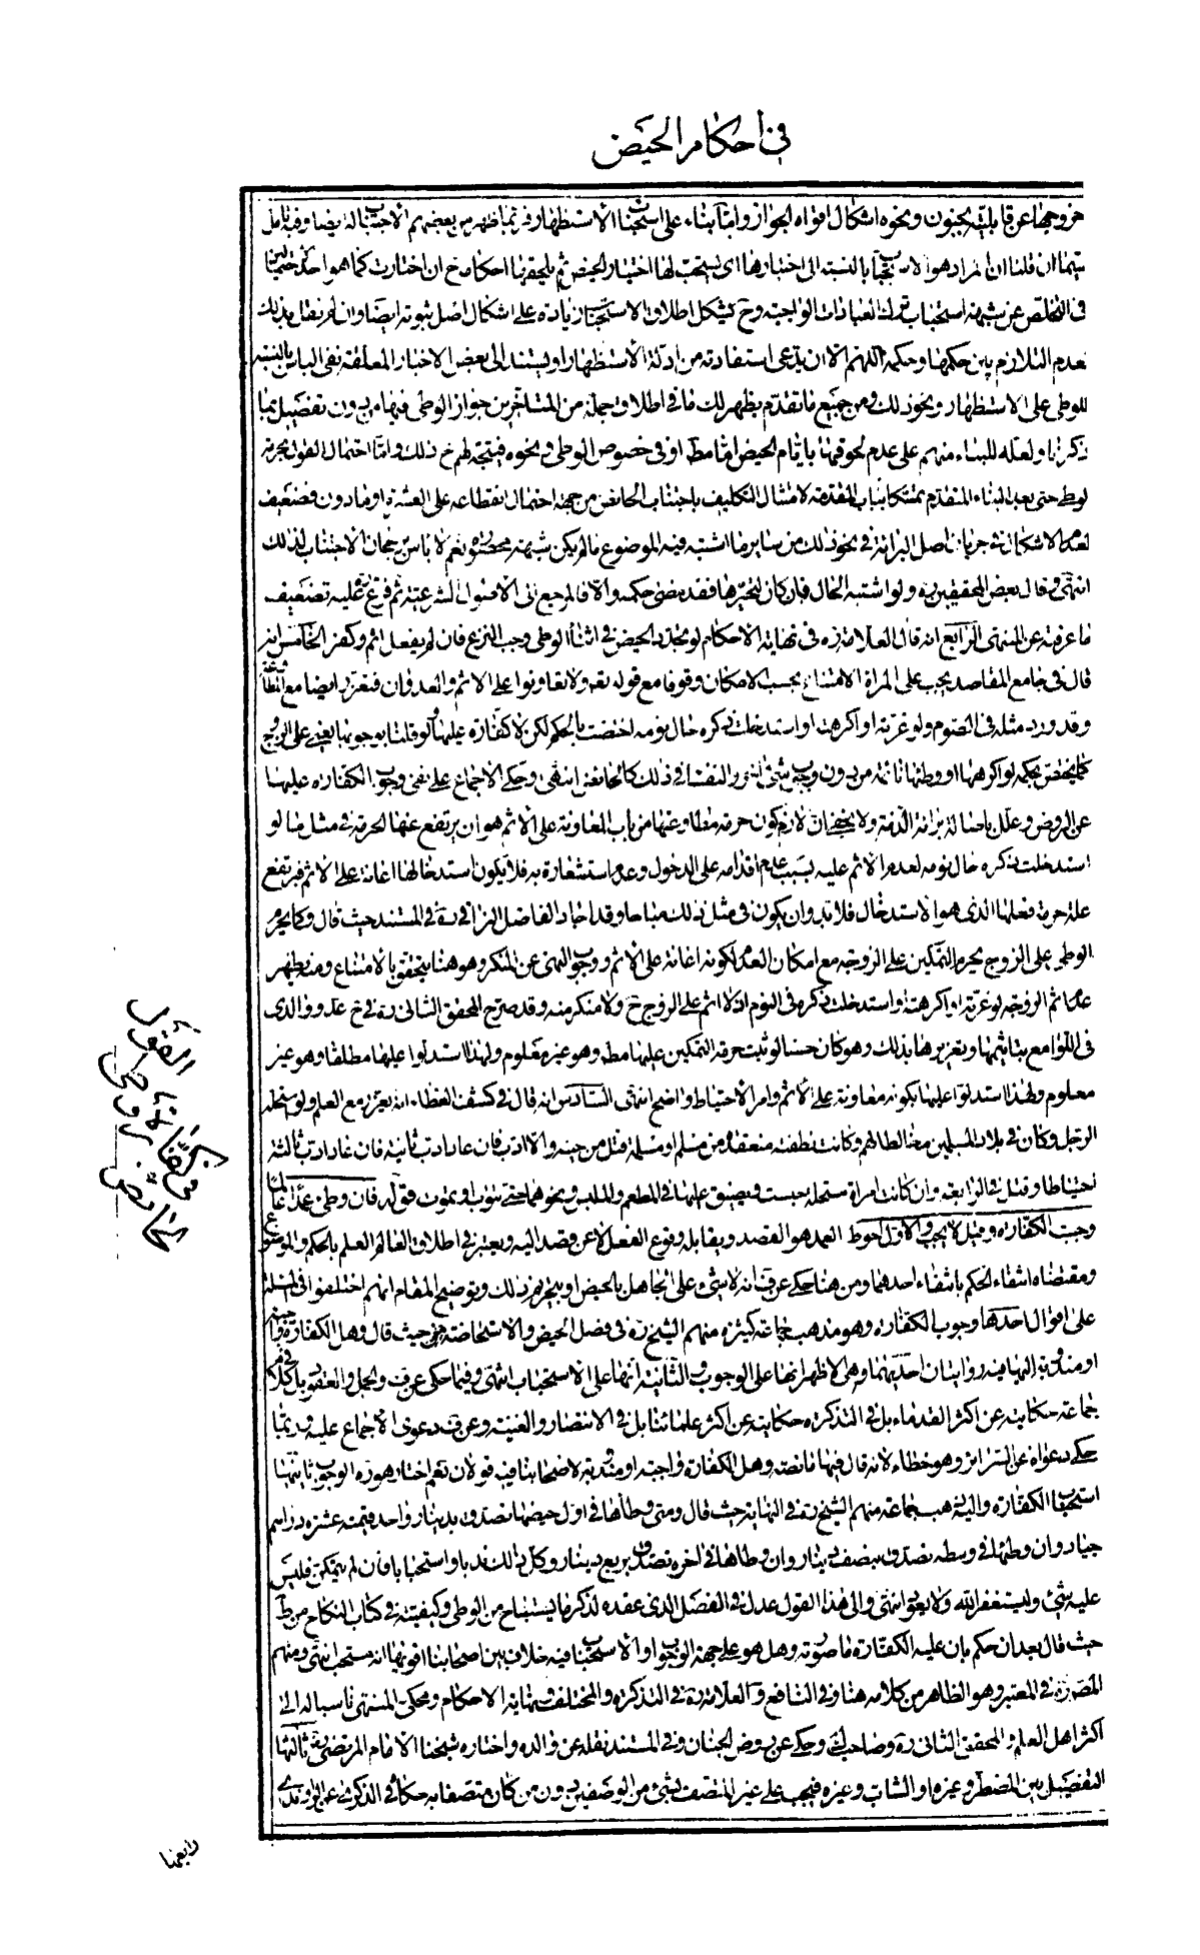 في احكام الحيض
خروجها عن قابليته بجنون ونحوه اشكال اقواه الجواز واما بناء على استحباب الاستظهار فربما ظهر من بعضهم الاجتناب له ايضا وفيه تأمل
سيما ان قلنا ان المراد هو الاستحباب بالنسبة الى اختيارها اي يستحب لها اختيار الحيض ثم يلحقها احكامه ح ان اختارت كما هو احد
في التخلص عن شبهة استحباب ترك العبادات الواجبة وح يشكل اطلاق الاستحباب زيادة على اشكال اصل ثبوته ايضا وان لم نقل بذلك
لعدم التلازم بين حكمها وحكمه اللهم الا ان يدعى استفادته من ادلة الاستظهار او يستند الى بعض الاخبار المعلقة نفي الباس بالنسبة
للوطي على الاستظهار ونحو ذلك ومن جميع ما تقدم يظهر لك ما في اطلاق جملة من المتأخرين جواز الوطي فيها من دون تفصيل بما
ذكرنا ولعله للبناء منهم على عدم لحوقها بايام الحيض اما مط او في خصوص الوطي ونحوه فيتجه لهم ح ذلك واما احتمال القول بحرمة
الوطي حتى بعد البناء المتقدم تمسكا بباب المقدمة لامتثال التكليف باجتناب الحائض من جهة احتمال انقطاعه على العشرة او ما دون فضعيف
لعدم الاشكال في جريان اصل البرائة في نحو ذلك من ساير ما اشتبه فيه الموضوع ما لم يكن شبهة محصورة نعم لا باس برجحان الاجتناب لذلك
انتهى وقال بعض المحققين ره ولو اشتبه الحال فان كان لتحيرها فقد مضى حكمه والا فالمرجع الى الاصول الشرعية ثم فرع عليه تضعيف
ما عرفته عن المنتهى الرابع انه قال العلامة ره في نهاية الاحكام لو تجدد الحيض في اثناء الوطي وجب النزع فان لم يفعل اثم وكفر الخامس انه
قال في جامع المقاصد يجب على المراة الامتناع بحسب الامكان وقوفا مع قوله تع ولا تعاونوا على الاثم والعدوان فتعزر ايضا مع المطاوعة
وقد ورد مثله في الصوم ولو غرته او اكرهته او استدخلت ذكره حال نومه اختصت بالحكم لكن لا كفارة عليها ولو قلنا بوجوبها على الزوج
كما يختص بحكمه لو اكرهها او وطئها نائمة من دون وجوب شئ اخر والنفساء في ذلك كالحائض انتهى وحكى الاجماع على نفي وجوب الكفارة عليها
عن الروض وعلل باصالة برائة الذمة ولا يخفى ان لازم كون حرمة مطاوعتها من باب المعاونة على الاثم هو ان يرتفع عنها الحرمة في مثل ما لو
استدخلت ذكره حال نومه لعدم الاثم عليه بسبب عدم اقدامه على الدخول وعدم استشعاره به فلا يكون استدخالها اعانة على الاثم فيرتفع
علة حرمة فعلها الذي هو الاستدخال فلا بد وان يكون في مثل ذلك مباحا وقد اجاد الفاضل النراقي ره في المستند حيث قال وكما يحرم
الوطي على الزوج يحرم التمكين على الزوجة مع امكان العدم لكونه اعانة على الاثم ووجوب النهي عن المنكر وهو هنا يتحقق بالامتناع ومنه يظهر
عدم اثم الزوجة لو غرته او اكرهته او استدخلت ذكره في النوم اذ لا اثم على الزوج ح ولا منكر منه وقد صرح المحقق الثاني ره في شرح عد ووالدي
في اللوامع بتأثيمها وتعزيرها بذلك وهو كان حسنا لو ثبت حرمة التمكين عليها مط وهو غير معلوم ولهذا استدلوا عليها مطلقا وهو غير
معلوم ولهذا استدلوا عليها بكونه معاونة على الاثم وامر الاحتياط واضح انتهى السادس انه قال في كشف الغطاء انه يعزر مع العلم ولو استحله
الرجل وكان في بلاد المسلمين مخالطا لهم وكانت نطفته منعقدة من مسلم او مسلمة قتل من حينه والا ادب فان عاد ادب ثانية فان عاد ادب ثالثة
احتياطا وقتل في الرابعة وان كانت امراة مستحلة حبست ويضيق عليها في المطعم والملبس ونحوهما حتى تتوب او تموت قوله فان وطى عمدا عالما
وجبت الكفارة وقيل لا يجب والاول احوط العمد هو القصد ويقابله وقوع الفعل لا عن قصد اليه ويعتبر في اطلاق العالم العلم بالحكم والموضوع
ومقتضاه انتفاء الحكم بانتفاء احدهما ومن هنا حكى عن ف انه لا شئ على الجاهل بالحيض او بتحريم ذلك وتوضيح المقام انهم اختلفوا في المسئلة
على اقوال احدها وجوب الكفارة وهو مذهب جماعة كثيرة منهم الشيخ ره في فصل الحيض والاستحاضة حيث قال وهل الكفارة واجبة
او مندوبة اليها فيه روايتان احديهما وهي الاظهر انها على الوجوب والثانية انها على الاستحباب انتهى وفيما حكى عن ف والجمل والعقود بل في كلام
جماعة حكايته عن اكثر القدماء بل في التذكرة حكايته عن اكثر علمائنا بل في الانتصار والغنية وعن ف دعوى الاجماع عليه وربما
حكى دعواه عن السرائر وهو خطاء لانه قال فيها ما نصه وهل الكفارة واجبة او مندوبة لاصحابنا فيه قولان نعم اختار هو ره الوجوب ثانيها
استحباب الكفارة واليه ذهب جماعة منهم الشيخ ره في النهاية حيث قال ومتى وطأها في اول حيضها تصدق بدينار واحد قيمته عشرة دراهم
جياد وان وطئها في وسطه تصدق بنصف دينار وان وطاها في اخره تصدق بربع دينار وكل ذلك ندبا واستحبابا فان لم يتمكن فليس
عليه شئ وليستغفر الله ولا يعود انتهى والى هذا القول عدل في الفصل الذي عقده لذكر ما يستباح من الوطي وكيفيته في كتاب النكاح من ط
حيث قال بعد ان حكم بان عليه الكفارة ما صورته وهل هو على جهة الوجوب او الاستحباب فيه خلاف بين اصحابنا اقويهما انه مستحب انتهى ومنهم
المصنف ره في المعتبر وهو الظاهر من كلامه هنا وفي النافع والعلامة ره في التذكرة والمختلف ونهاية الاحكام ومحكي المنتهى ناسبا له الى
اكثر اهل العلم والمحقق الثاني ره وصاحب ك وحكى عن روض الجنان وفي المستند نقله عن والده واختاره شيخنا الامام المرتضى ره ثالثها
التفصيل بين المضطر وغيره او الشاب وغيره فيجب على غير المتصف بشئ من الوصفين دون من كان متصفا به حكاه في الذكرى عن الراوندي
القول
في كفارة وطي
الحائض
رابعها